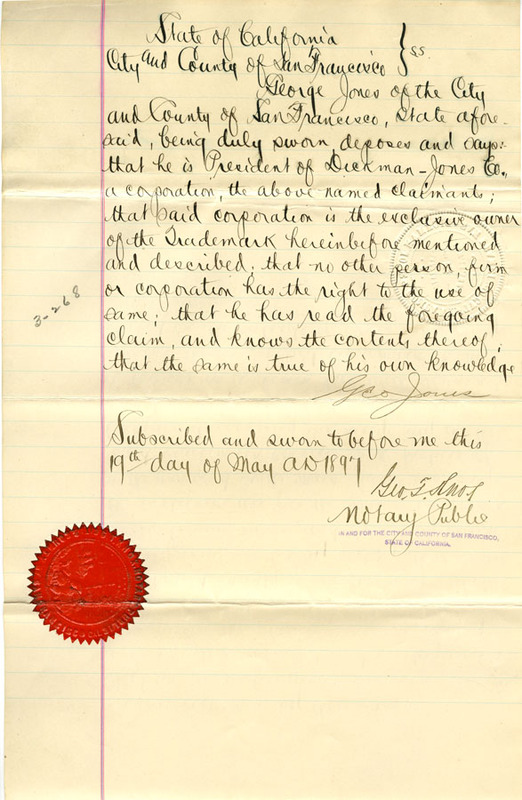 State of California
City and County of San Francisco } ss
George Jones of the City
and County of San Francisco, State afore-
said, being duly sworn, deposes and says:
that he is President of Dickman-Jones Co.,
a corporation, the above named claimants;
that said corporation is the exclusive owner
of the Trademark hereinbefore mentioned
and described; that no other person, firm
or corporation has the right to the use of
same; that he has read the foregoing
claim, and knows the contents thereof,
that the same is true of his own knowledge
3-268
Geo Jones
Subscribed and sworn to before me this
19th day of May AD 1897
Geo. T. Knox
Notary Public
IN AND FOR THE CITY AND COUNTY OF SAN FRANCISCO,
STATE OF CALIFORNIA.